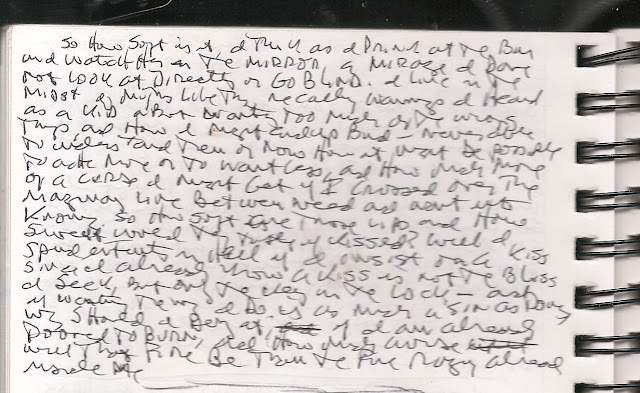 So How Soft is it, I Think as I Drink at The Bar
and watch Her in The MIRROR, a MIRAGE I Dare
not Look at Directly or Go BLIND. I Live in The
Midst of Myths Like This, recalling warnings I Heard
as a Kid about wanting Too Much of the wrong
Things, and How I might end up Bad – never able
To understand Them or How How it might be possible
To ache More or To want Less, and How Much More
of a curse I might Get if I Crossed over The
line Between need and want
Knowing So How Soft are Those Lips and How
Sweet would They Taste if Kissed? Will I
Spend in Hell if I insist on a Kiss
Since I already know A Kiss is not The Bliss
I Seek, But only The key in The Lock – and
if wanting The way I Do is as Much a Sin as Doing
why Should I Deny it, if I am already
Doomed To Burn, and How Much worse
will That Fire Be Than The Fire already
inside Me